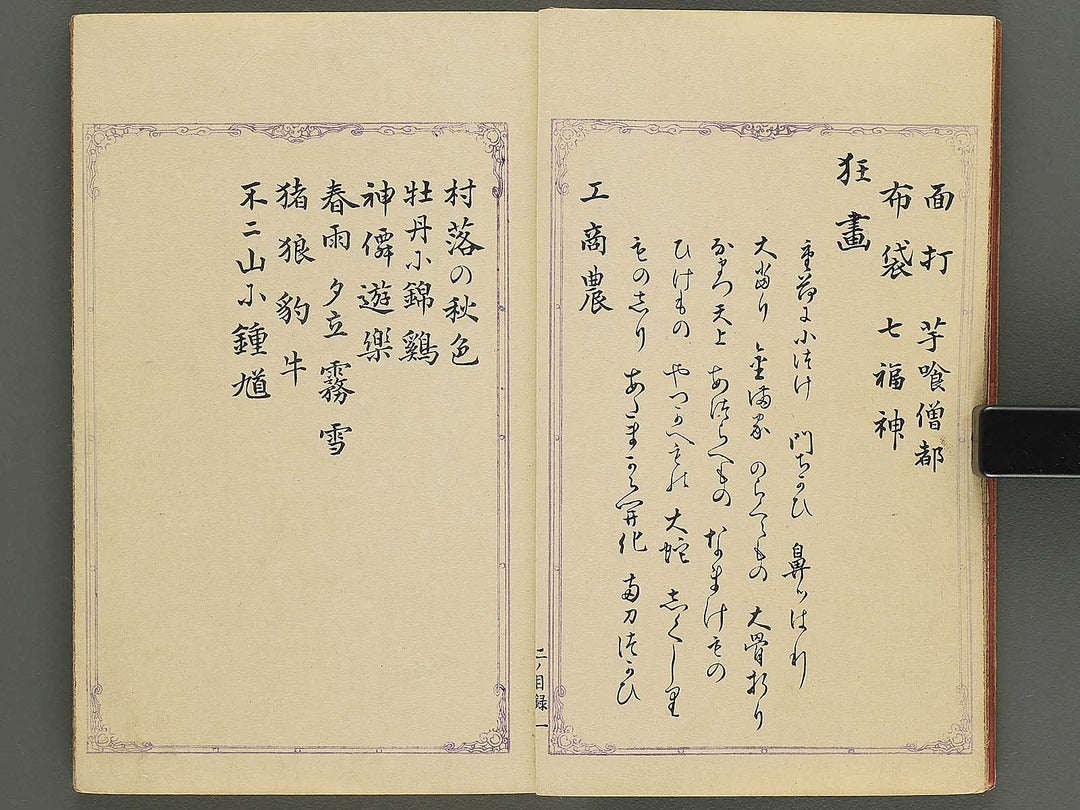 面打 芋喰僧都
布袋 七福神
狂畫
重荷に小附け 門ちかひ 鼻つはり
大当り 金満家 のらくらもの 大骨折り
天上 あつらへもの なまけもの
ひけもの やつかへもの 大蛇 しくじり
ものしり あたまから開化 両刀つかひ
工商農
二ノ目録 一
村落の秋色
牡丹小錦鷄
神僊遊樂
春雨 夕立 霧 雪
猪 狼 豹 牛
不二山小鍾馗